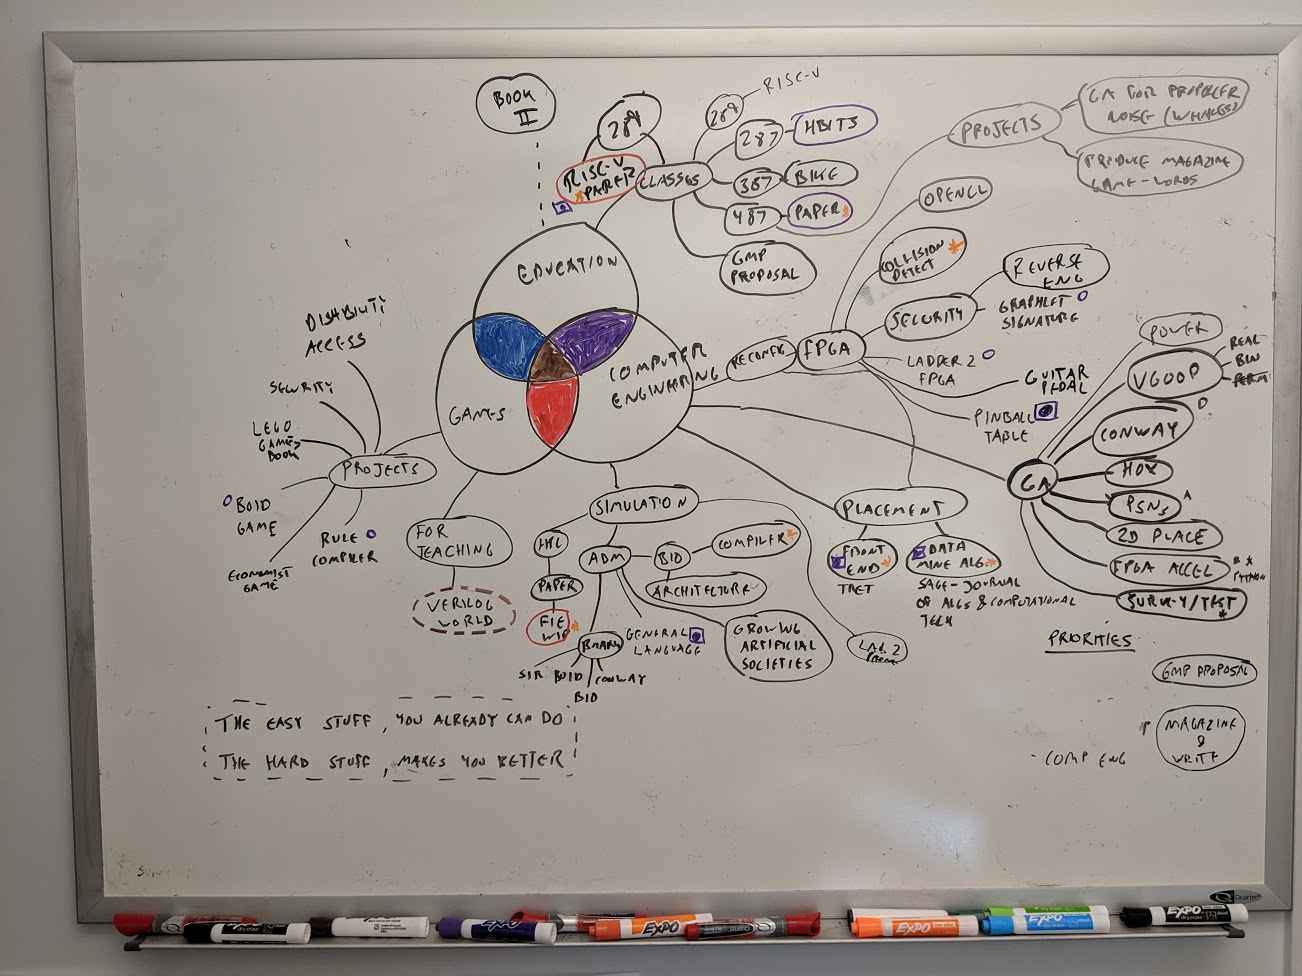 BOOK
II
289
RISC-V
PAPER
CLASSES
289
RISC-V
287
HBITS
387
BIKE
487
PAPER
GMP
PROPOSAL
PROJECTS
GA FOR PROPELLER
NOISE (WHALES)
PRODUCE MAGAZINE
GAME-WORDS
OPENCL
COLLISION
DETECT
REVERSE
ENG
SECURITY
GRAPHLET
SIGNATURE
EDUCATION
COMPUTER
ENGINEERING
GAMES
RECONFIG
FPGA
LADDER 2
FPGA
GUITAR
PEDAL
PINBALL
TABLE
POWER
VGOOP
REAL
BIN
PERM
CONWAY
D
GA
PSNs
2D PLACE
FPGA ACCEL
PYTHON
SURVEY/TEST
DISABILITY
ACCESS
SECURITY
LEGO
GAMES
BOOK
PROJECTS
BOID
GAME
RULE
COMPILER
ECONOMIST
GAME
FOR
TEACHING
VERILOG
WORLD
SIMULATION
PAPER
FIE
WIP
ABM
BIO
COMPILER
ARCHITECTURE
GENERAL
LANGUAGE
GROWING
ARTIFICIAL
SOCIETIES
BMARK
SIR
BOID
CONWAY
BIO
PLACEMENT
FRONT
END
TRET
DATA
MINE ALG
SAGE-JOURNAL
OF ALGS & COMPUTATIONAL
TECH
PRIORITIES
GMP PROPOSAL
MAGAZINE
&
WRITE
- COMP ENG
THE EASY STUFF, YOU ALREADY CAN DO
THE HARD STUFF, MAKES YOU BETTER
Quartet
EXPO
EXPO
EXPO
EXPO
EXPO
EXPO